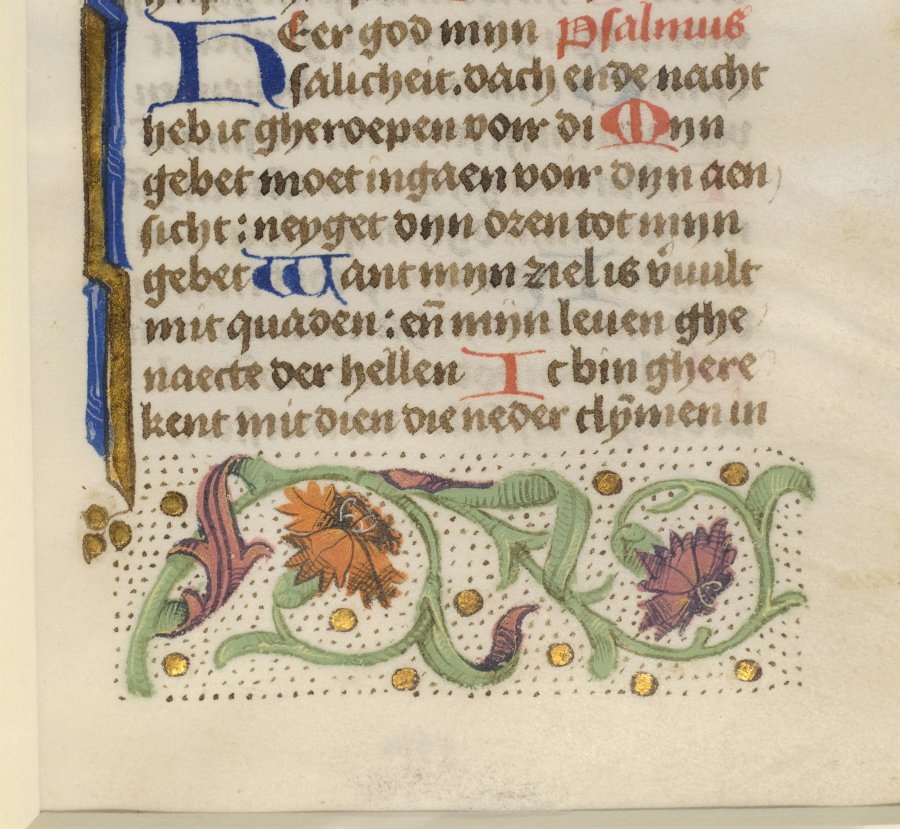 HEer god mijn Psalmus
salicheit. dach ende nacht
heb ic gheroepen voir di Mijn
gebet moet ingaen voir dijn aen
sicht: neyget dijn oren tot mijn
gebet Want mijn ziel is v̄uult
mit quaden: eñ mijn leuen ghe
naecte der hellen Ic bin ghere
kent mit dien die neder clȳmen in